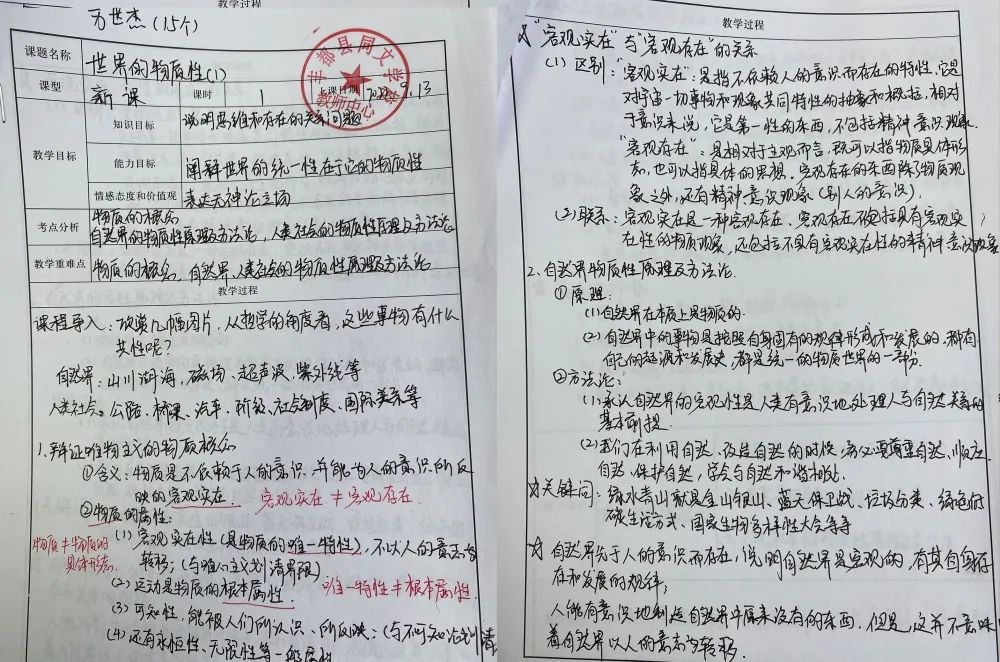 教学过程
万世杰(15个)
课题名称 世界的物质性(1)
课型 新课 课时 1 上课日期 9.13
丰都县同文学
教师中心
教学目标
知识目标 说明思维和存在的关系问题
能力目标 阐释世界的统一性在于它的物质性
情感态度和价值观 表达无神论立场
考点分析 物质的概念
自然界的物质性原理及方法论,人类社会的物质性原理及方法论
教学重难点 物质的概念,自然界、人类社会的物质性原理及方法论
教学过程
课程导入:欣赏几幅图片,从哲学的角度看,这些事物有什么
共性呢?
自然界:山川湖海,磁场,超声波,紫外线等
人类社会:公路、桥梁、汽车、阶级、社会制度、国际关系等
1.辩证唯物主义的物质概念
①含义:物质是不依赖于人的意识,并能为人的意识所反
映的客观实在 客观实在≠客观存在
②物质的属性:
(1)客观实在性(是物质的唯一特性),不以人的意志为
转移;(与唯心主义划清界限)
物质≠物质的
具体形态
(2)运动是物质的根本属性 唯一特性≠根本属性
(3)可知性,能被人们所认识、所反映:(与不可知论划清
(4)还有永恒性、无限性等一般属性
教学过程
"客观实在"与"客观存在"的关系
(1)区别:"客观实在":是指不依赖人的意识而存在的特性,它是
对宇宙一切事物和现象共同特性的抽象和概括,相对
于意识来说,它是第一性的东西,不包括精神意识现象
"客观存在":是相对于主观而言,既可以指物质具体形
态,也可以指具体的思想。客观存在的东西除了物质现
象之外,还有精神意识现象(别人的意识)。
(2)联系:客观实在是一种客观存在,客观存在不包括具有客观实
在性的物质现象,不包括不具有客观实在性的精神意识现象
2.自然界物质性原理及方法论
①原理:
(1)自然界在本质上是物质的
(2)自然界中的事物是按照自身固有的规律形成和发展的,都有
自己的起源和发展史,都是统一的物质世界的一部分
②方法论:
(1)承认自然界的客观性是人类有意识地处理人与自然关系的
基本前提
(2)我们在利用自然、改造自然的时候,务必要尊重自然、顺应
自然、保护自然,学会与自然和谐相处
关键词:绿水青山就是金山银山、蓝天保卫战、垃圾分类、绿色低
碳生活方式、国家生物多样性大会等等
自然界先于人的意识而存在,说明自然界是客观的,有其自身存
在和发展的规律;
人能有意识地制造自然界中原来没有的东西,但是,这并不意味
着自然界以人的意志为转移.